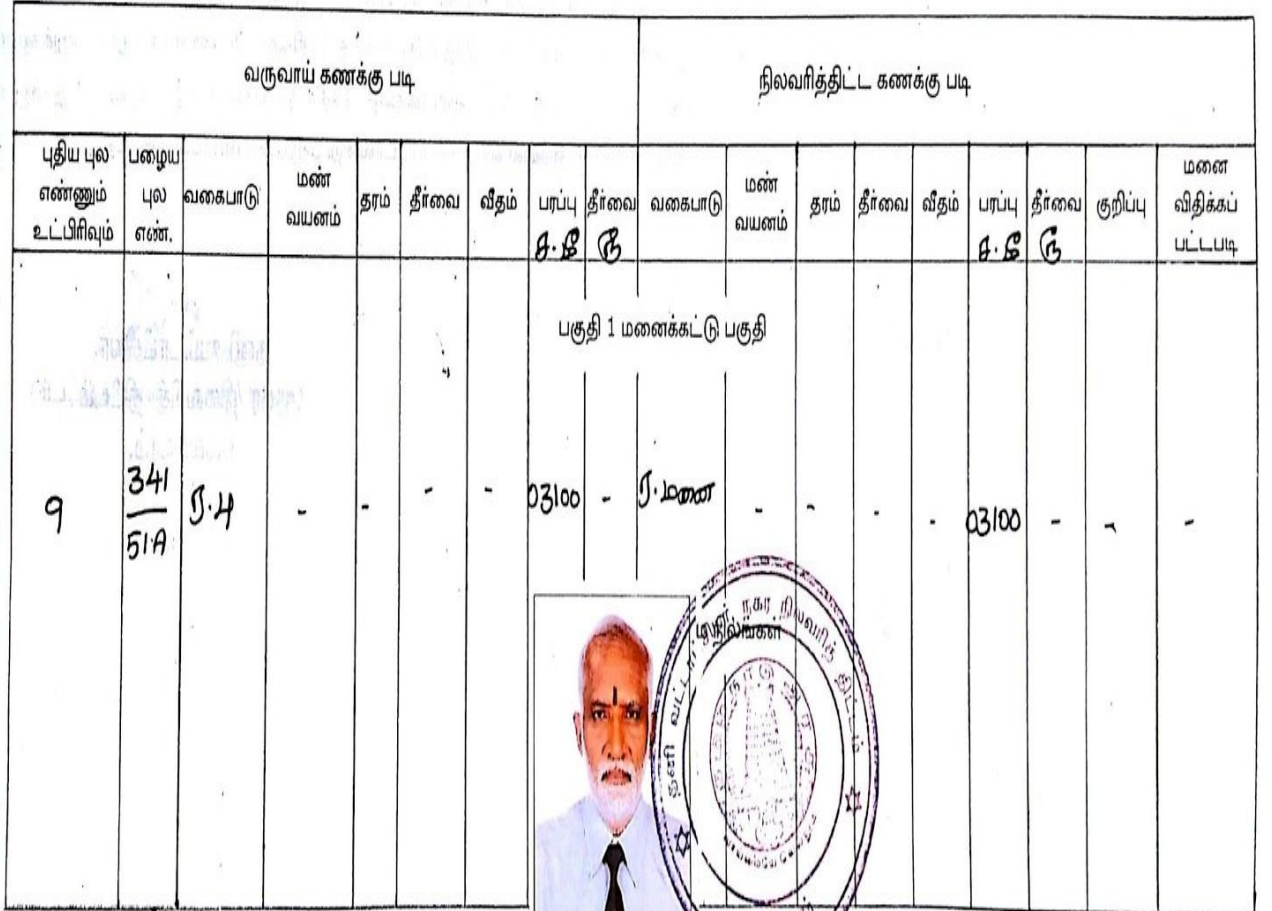 வருவாய் கணக்கு படி நிலவரித்திட்ட கணக்கு படி
புதிய புல எண்ணும் உட்பிரிவும் பழைய புல எண். வகைபாடு மண் வயனம் தரம் தீர்வை வீதம் பரப்பு ச.மீ தீர்வை ரூ வகைபாடு மண் வயனம் தரம் தீர்வை வீதம் பரப்பு ச.மீ தீர்வை ரூ குறிப்பு மனை விதிக்கப் பட்டபடி
பகுதி 1 மனைக்கட்டு பகுதி
9 341/51A ர.பு - - - - 03100 - ர.மனை - - - - 03100 - - -
தனி வட்டாட்சியர், நகர நிலவரித் திட்டம்
தமிழ்நாடு அரசு
வாய்மையே வெல்லும்